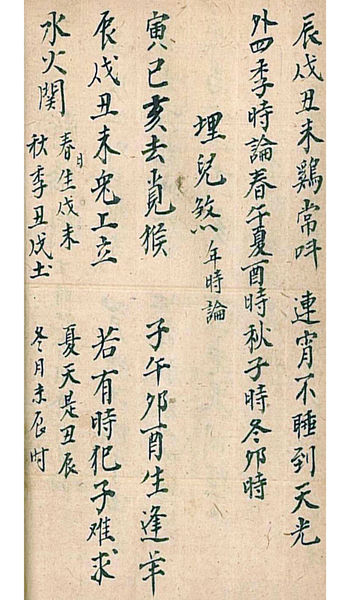 辰戌丑未鷄常呌 連宵不睡到天光
外四季時論春午夏酉時秋子時冬卯時
埋兒煞 年時論
寅巳亥去覓猴 子午卯酉生逢
辰戌丑未兔工立 若有時犯子难求
水火関
春日生戌未 夏天是丑辰
秋季丑戌土 冬月未辰时